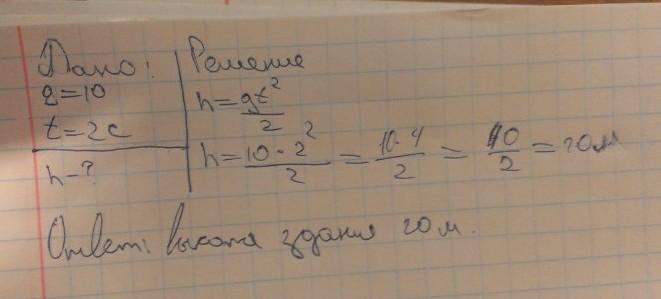 Дано:
g=10
t=2с
h-?
Решение
h=gt²/2
h=10·2²/2=10·4/2=40/2=20м
Ответ: высота здания 20 м.